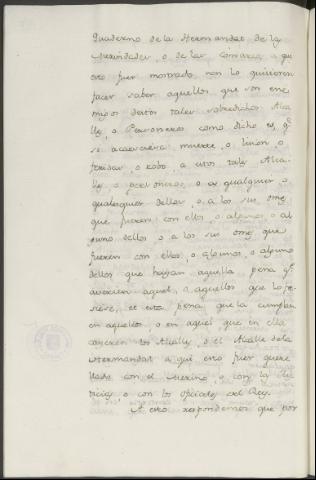 Quaderno de la Hermandat de las
Merindades, o de las comarcas a qui
esto fuer mostrado non lo quisieron
facer saber aquellos que son ene
migos destos tales sobredichos Alca
lls, o Personeros como dicho es, q.e
si acaesciere muerte, o lision, o
feridas, o robo a estos tales Alcal-
les, o personeros, o a qualquier, o
qualesquier dellos, o a los sus omes
que fueren con ellos, o algunos, o al
guno dellos o a los sus omes que
fueren con ellos, o algunos, o alguno
dellos que hayan aquella pena q.e
avrien aquel, o aquellos que lo fi-
ciere, et esta pena que la cumplan
en aquellos, o en aquel que en ella
cayeren los Alcalls, o el Alcalle de la
Hermandat a qui esto fuer quere
llado con el Merino, o con la Jus
ticia, o con los oficiales del Rey.
A esto respondemos que por